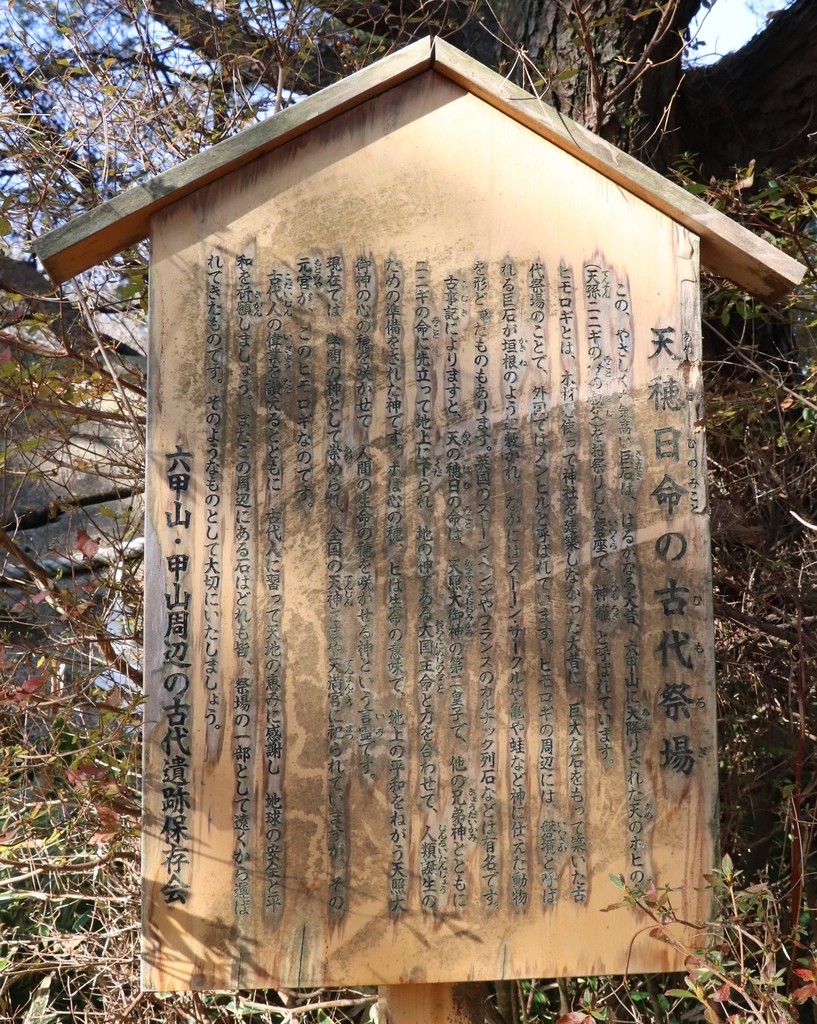 天穂日命の古代祭場
あめのほひのみこと
ひもろぎ
この、やさしくも気高い巨石は、はるかなる太昔、六甲山に天降りされた天のホヒの
(天孫ニニギの命の叔父)をお祭りした磐座で、神籬と呼ばれています。
ヒモロギとは、木材を使って神社を建築しなかった大昔に、巨大な石をもって築いた古
代祭場のことで、外国ではメンヒルと呼ばれています。ヒモロギの周辺には、磐境と呼ば
れる巨石が垣根のように繋がれ、なかにはストーン・サークルや亀や蛙など神に仕えた動物
を形どったものもあります。英国のストーンヘンジやフランスのカルナック列石などは有名です。
古事記によりますと、天の穂日の命は、天照大御神の第二皇子で、他の兄弟神とともに
ニニギの命に先立って地上に下られ、地の神である大国主命と力を合わせて、人類誕生の
ための準備をされた神です。ホは心の穂、ヒは生命の意味で、地上の平和をねがう天照大
御神の心の穂を咲かせて、人間の生命の穂を咲かせる神という言霊です。
現在では、学問の神として崇められ、全国の天神さまや天満宮に祀られていますが、その
元宮が、このヒモロギなのです。
古代人の偉業を讃えるとともに、古代人に習って天地の恵みに感謝し、地球の安全と平
和を祈願しましょう。またこの周辺にある石はどれも皆、祭場の一部として遠くから運ば
れてきたものです。そのようなものとして大切にいたしましょう。
六甲山・甲山周辺の古代遺跡保存会